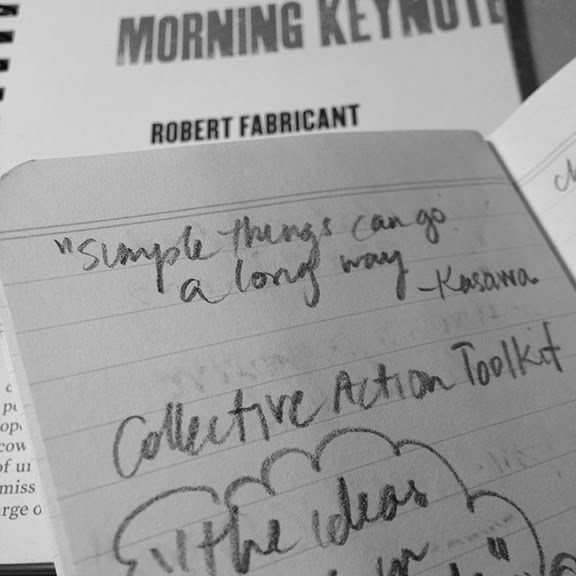 MORNING KEYNOTE
ROBERT FABRICANT
"simple things can go
a long way
-Kasawa
Collective Action Toolkit
"the ideas
of
miss